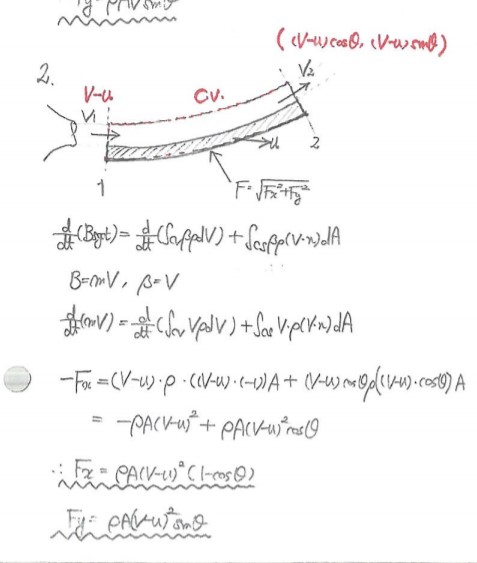 Fy = ρAV²sinθ
2.
( (V-u)cosθ, (V-u)sinθ)
V-u
C.V.
V₂
V₁
u
1
2
F = √Fx²+Fy²
d/dt(Bsyst) = d/dt(∫cv βρdV) + ∫cs βρ(V·n)dA
B=mV, β=V
d/dt(mV) = d/dt(∫cv VρdV) + ∫cs V·ρ(V·n)dA
-Fx = (V-u)·ρ·((V-u)·(-1))A + (V-u)cosθρ((V-u)·cosθ)A
= -ρA(V-u)² + ρA(V-u)²cosθ
∴ Fx = ρA(V-u)²(1-cosθ)
Fy = ρA(V-u)²sinθ